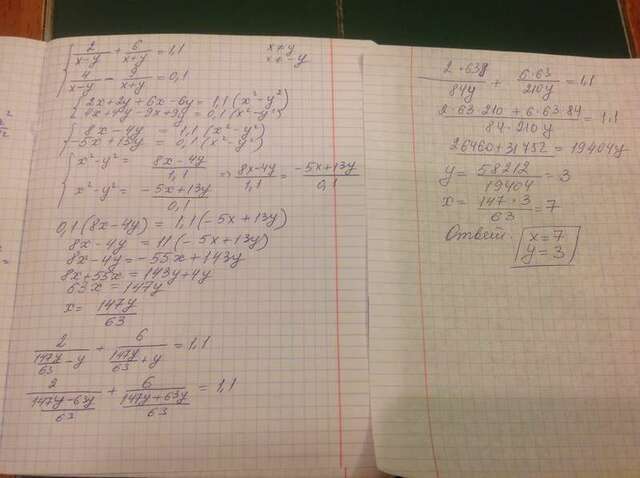 2/(x-y) + 6/(x+y) = 1,1
x≠y
x≠-y
4/(x-y) - 9/(x+y) = 0,1
2x+2y+6x-6y = 1,1(x²-y²)
4x+4y-9x+9y = 0,1(x²-y²)
8x-4y = 1,1(x²-y²)
-5x+13y = 0,1(x²-y²)
x²-y² = (8x-4y)/1,1 ⇒ (8x-4y)/1,1 = (-5x+13y)/0,1
x²-y² = (-5x+13y)/0,1
0,1(8x-4y) = 1,1(-5x+13y)
8x-4y = 11(-5x+13y)
8x-4y = -55x+143y
8x+55x = 143y+4y
63x = 147y
x = 147y/63
2/(147y/63 - y) + 6/(147y/63 + y) = 1,1
2/((147y-63y)/63) + 6/((147y+63y)/63) = 1,1
2·63/84y + 6·63/210y = 1,1
(2·63·210 + 6·63·84)/(84·210y) = 1,1
26460+31752 = 19404y
y = 58212/19404 = 3
x = 147·3/63 = 7
Ответ: x=7
y=3